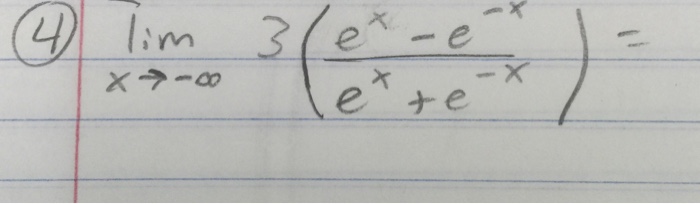 ④ lim x→-∞ 3(e^x - e^-x / e^x + e^-x) =